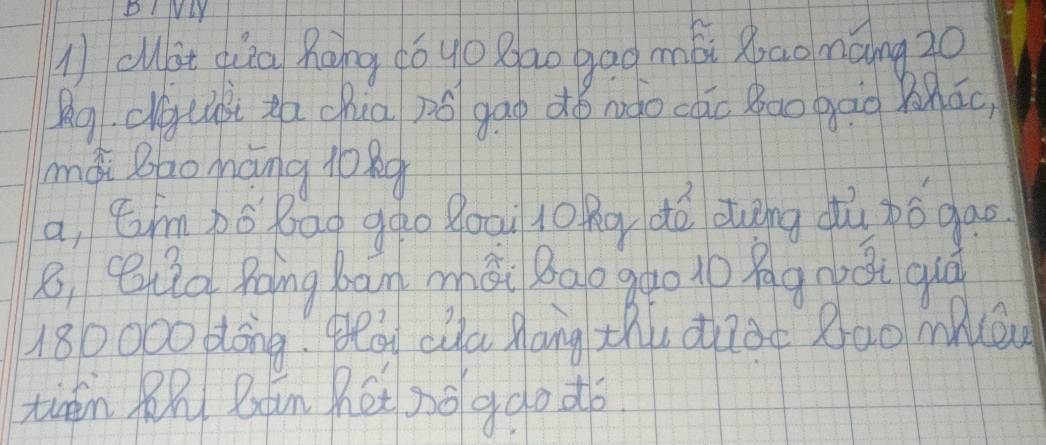 1) Một cửa hàng có 40 bao gạo mỗi bao nặng 20
kg. Người ta chia số gạo đó vào các bao gạo khác,
mỗi bao nặng 10kg
a, Tìm số bao gạo loại 10kg để đựng đủ số gạo.
b, Cửa hàng bán mỗi bao gạo 10 kg với giá
180 000 đồng. Hỏi cửa hàng thu được bao nhiêu
tiền khi bán hết số gạo đó.